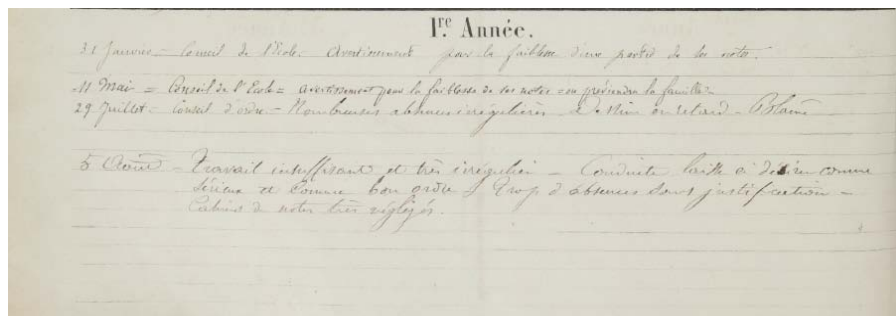 1re Année.
31 Janvier - Conseil de l'Ecole. Avertissement pour la faiblesse d'une partie de ses notes.
11 Mai = Conseil de l'Ecole = avertissement pour la faiblesse de ses notes = on préviendra la famille
29 Juillet - Conseil d'ordre - Nombreuses absences irrégulières en retard - Blâme
5 Août - Travail insuffisant et très irrégulier - Conduite laisse à désirer comme
sérieux et comme bon ordre. Trop d'absences sans justification -
Cahiers de notes très négligés.